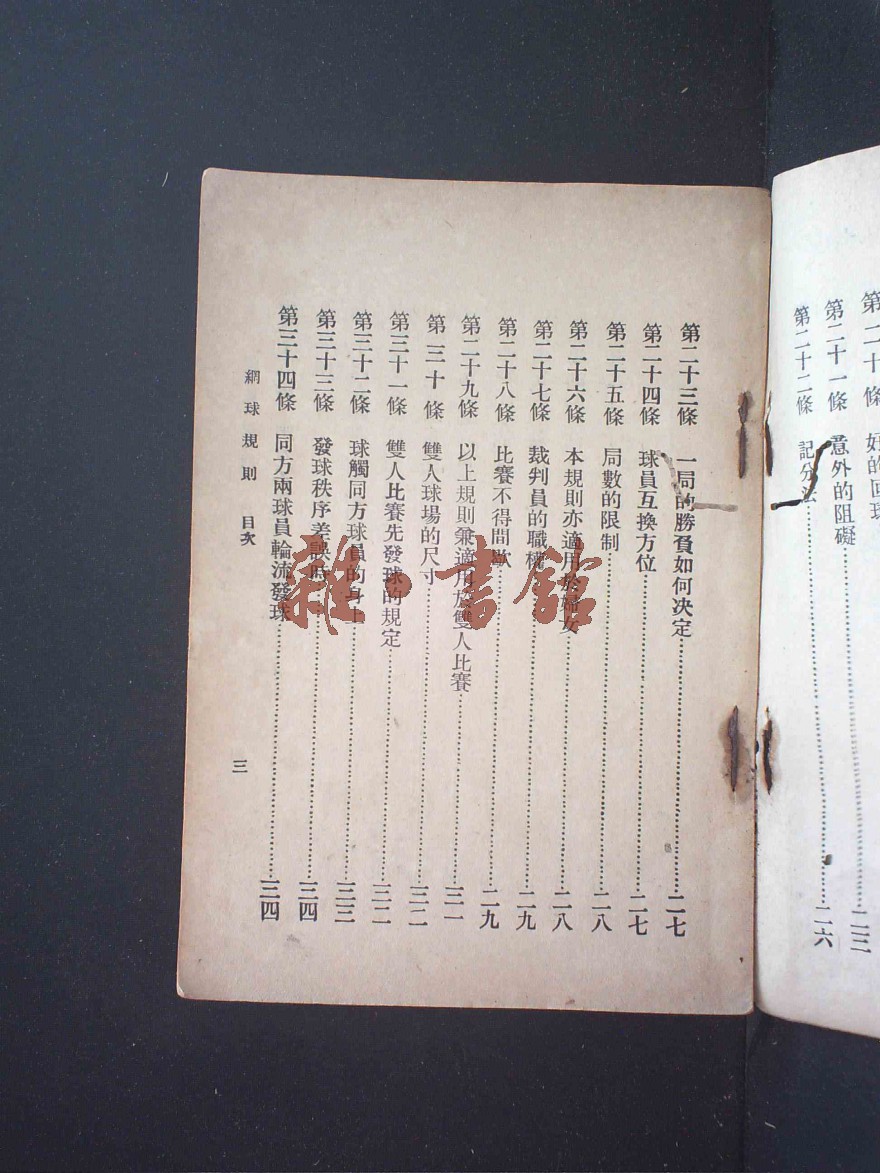 第二十條 好的回球
第二十一條 意外的阻礙……二三
第二十二條 記分法……二六
第二十三條 一局的勝負如何決定……二七
第二十四條 球員互換方位……二七
第二十五條 局數的限制……二八
第二十六條 本規則亦適用於婦女……二八
第二十七條 裁判員的職權……二九
第二十八條 比賽不得間歇……二九
第二十九條 以上規則兼適用於雙人比賽……三一
第三十條 雙人球場的尺寸……三二
第三十一條 雙人比賽先發球的規定……三二
第三十二條 球觸同方球員的身上……三三
第三十三條 發球秩序差誤時……三四
第三十四條 同方兩球員輪流發球……三四
網球規則 目次
三
雜·書館